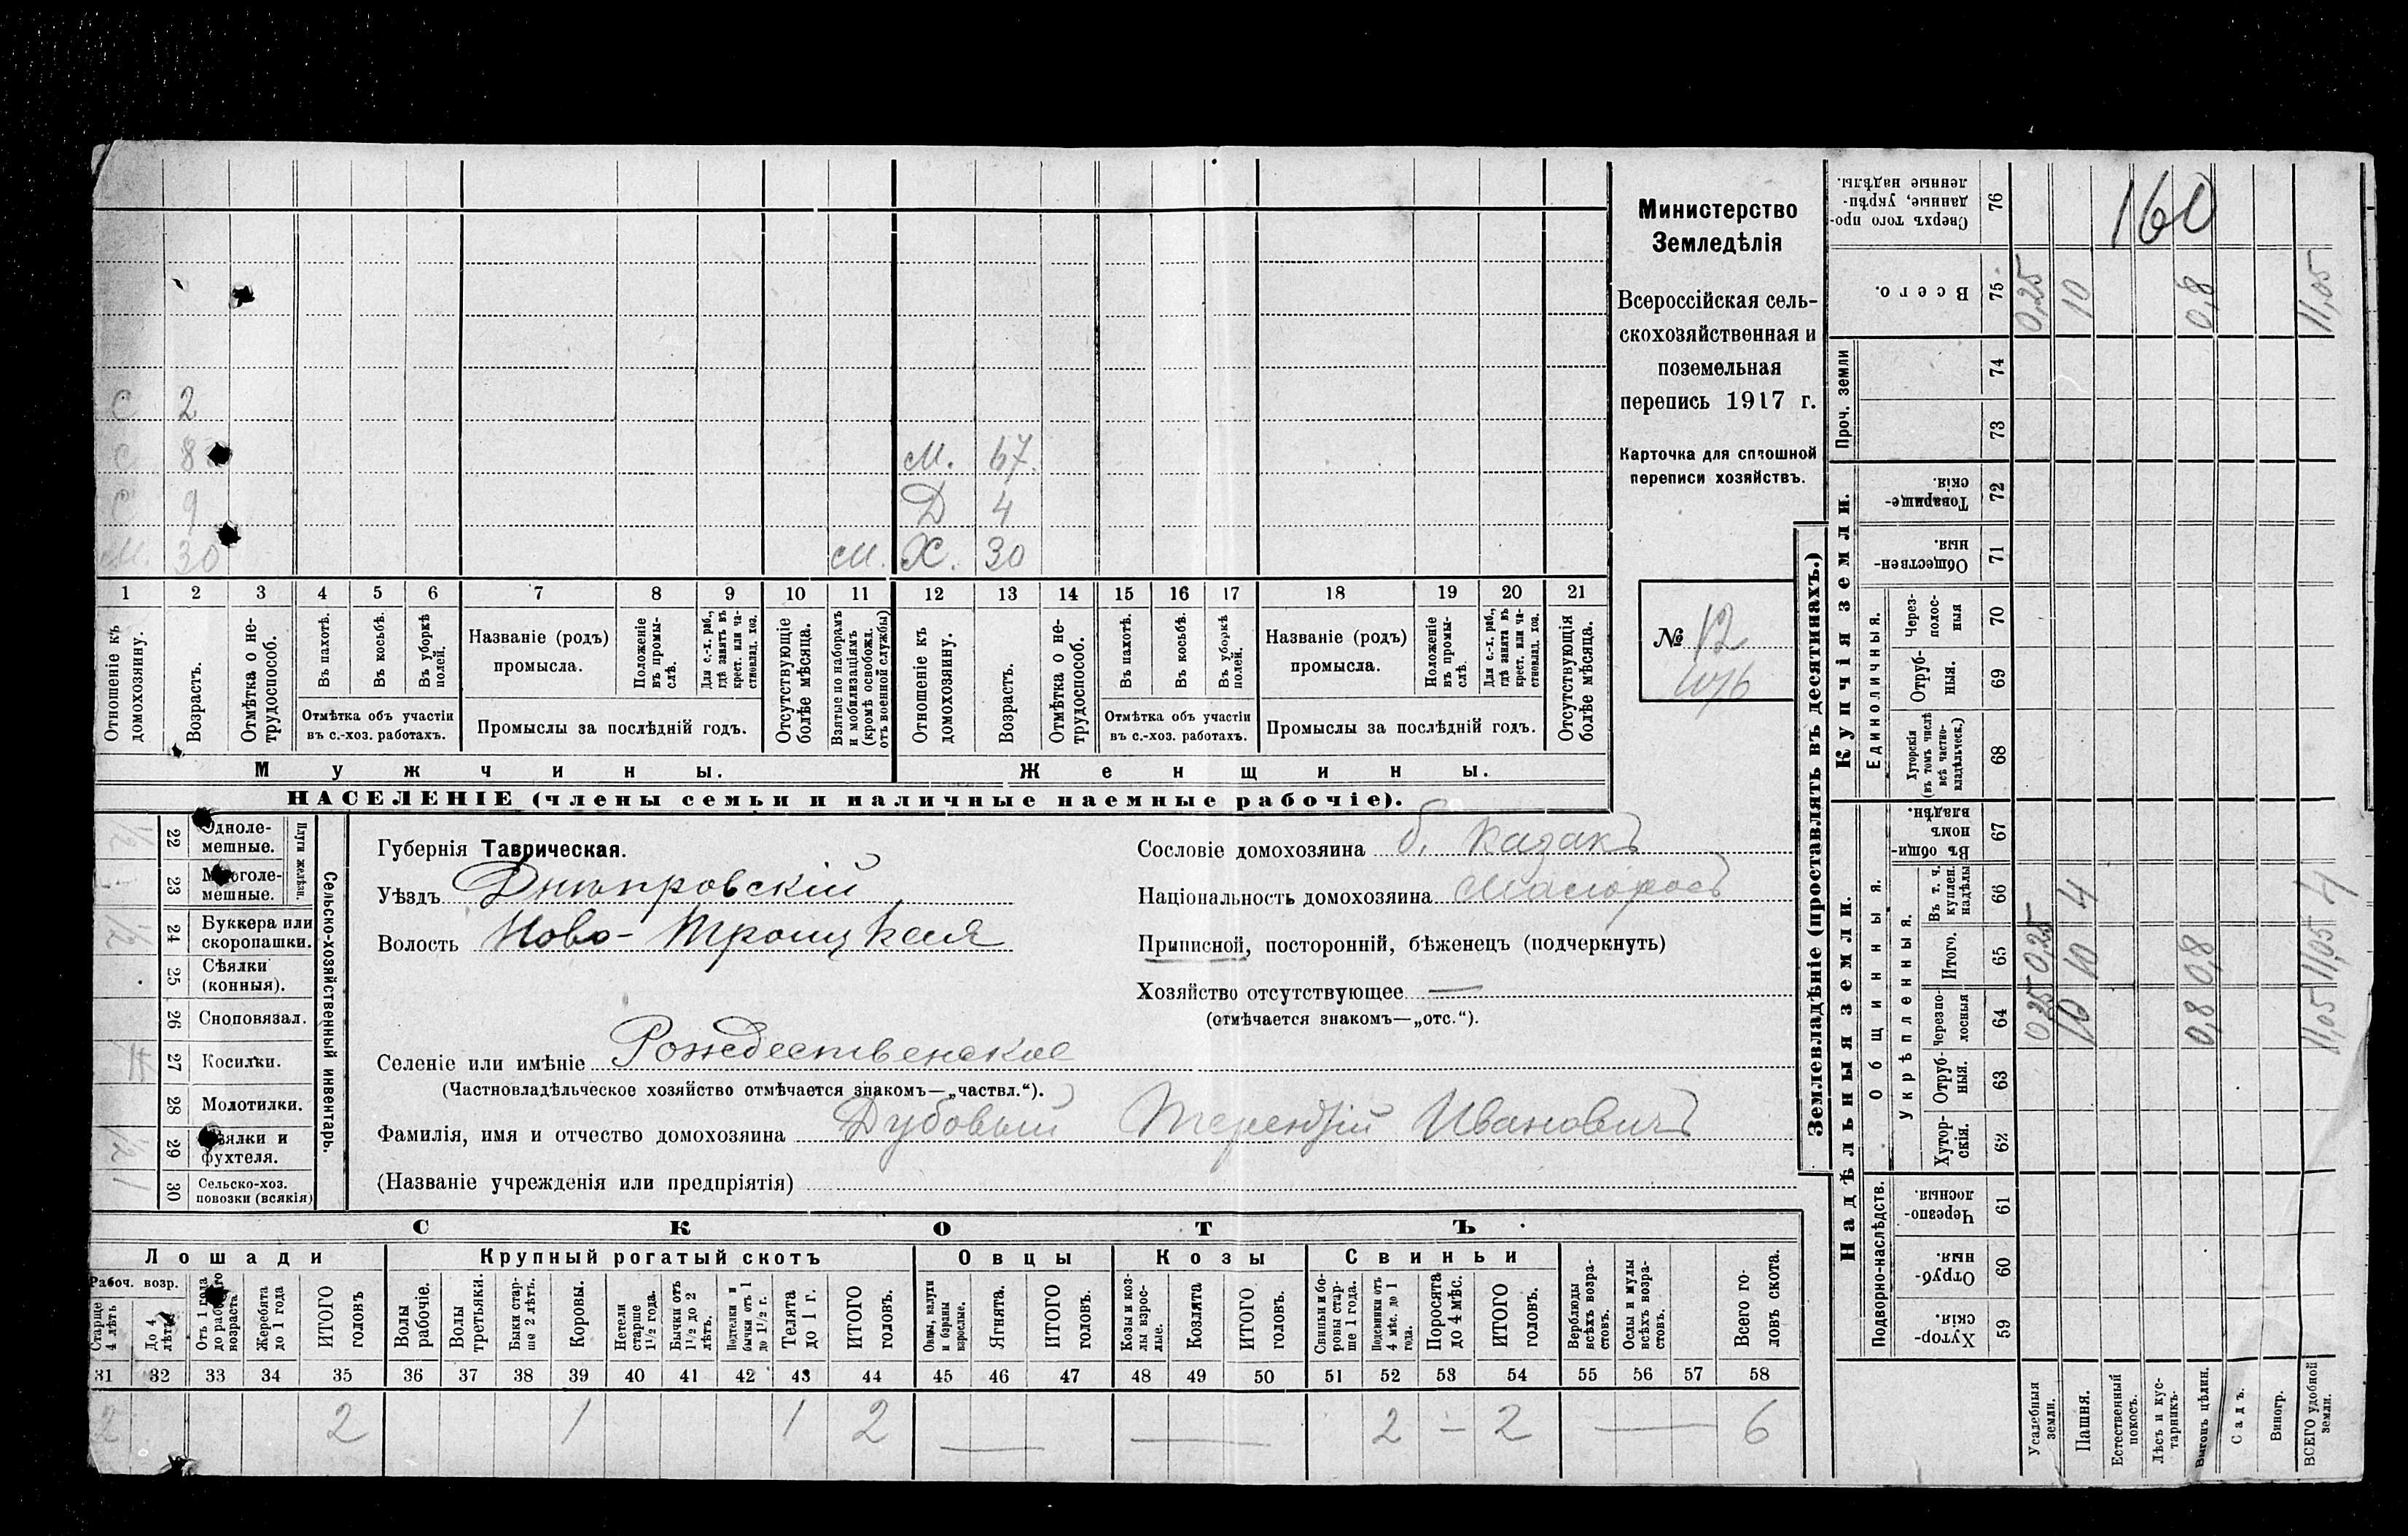 С 2
С 8 М. 67.
С 9 Д 4
М. 30 М. Х. 30
1 2 3 4 5 6 7 8 9 10 11 12 13 14 15 16 17 18 19 20 21
Отношеніе къ домохозяину.
Возрастъ.
Отмѣтка о не-трудоспособ.
Въ пахотѣ.
Въ косьбѣ.
Въ уборкѣ полей.
Отмѣтка объ участіи
въ с.-хоз. работахъ.
Названіе (родъ)
промысла.
Положеніе въ промы-слѣ.
Для с.-х. раб., гдѣ занятъ въ крест. или ча-стновлад. хоз.
Промыслы за послѣдній годъ.
Отсутствующіе болѣе мѣсяца.
Взятые по наборамъ и мобилизаціямъ (кромѣ освобожд. отъ военной службы)
Отношеніе къ домохозяину.
Возрастъ.
Отмѣтка о не-трудоспособ.
Въ пахотѣ.
Въ косьбѣ.
Въ уборкѣ полей.
Отмѣтка объ участіи
въ с.-хоз. работахъ.
Названіе (родъ)
промысла.
Положеніе въ промы-слѣ.
Для с.-х. раб., гдѣ занята въ крест. или ча-стновлад. хоз.
Промыслы за послѣдній годъ.
Отсутствующія болѣе мѣсяца.
Мужчины. Женщины.
НАСЕЛЕНІЕ (члены семьи и наличные наемные рабочіе).
Министерство
Земледѣлія
Всероссійская сель-
скохозяйственная и
поземельная
перепись 1917 г.
Карточка для сплошной
переписи хозяйствъ.
№ 12
Сельско-хозяйственный инвентарь.
Плуги желѣзн.
22 Одноле-мешные. 1/2
23 Многоле-мешные.
24 Буккера или скоропашки. 1/2
25 Сѣялки (конныя).
26 Сноповязал.
27 Косилки.
28 Молотилки.
29 Вѣялки и фухтеля. 1/2
30 Сельско-хоз. повозки (всякія) 1
Губернія Таврическая.
Уѣздъ Днѣпровскій
Волость Ново-Троицкая
Селеніе или имѣніе Рождественское
(Частновладѣльческое хозяйство отмѣчается знакомъ—„частвл.“).
Фамилія, имя и отчество домохозяина Дубовый Терентій Ивановичъ
(Названіе учрежденія или предпріятія)
Сословіе домохозяина б. казакъ
Національность домохозяина Малоросъ
Приписной, посторонній, бѣженецъ (подчеркнуть)
Хозяйство отсутствующее —
(отмѣчается знакомъ—„отс.“).
СКОТЪ
Лошади Крупный рогатый скотъ Овцы Козы Свиньи
Рабоч. возр.
Старше 4 лѣтъ
До 4 лѣтъ
Отъ 1 года до рабочаго возраста
Жеребята до 1 года
ИТОГО головъ
Волы рабочіе.
Волы третьяки.
Быки стар-ше 2 лѣтъ.
Коровы.
Нетели старше 1½ года.
Бычки отъ 1½ до 2 лѣтъ.
Подтелки и бычки отъ 1 до 1½ г.
Телята до 1 г.
ИТОГО головъ.
Овцы, валухи и бараны взрослые.
Ягнята.
ИТОГО головъ.
Козы и коз-лы взрос-лые.
Козлята
ИТОГО головъ.
Свиньи и бо-ровы стар-ше 1 года.
Подсвинки отъ 4 мѣс. до 1 года.
Поросята до 4 мѣс.
ИТОГО головъ.
Верблюды всѣхъ возра-стовъ.
Ослы и мулы всѣхъ возра-стовъ.
Всего го-ловъ скота.
31 32 33 34 35 36 37 38 39 40 41 42 43 44 45 46 47 48 49 50 51 52 53 54 55 56 57 58
2 2 1 1 2 — — 2 – 2 — 6
Землевладѣніе (проставлять въ десятинахъ.)
160
Сверхъ того про-данные, укрѣп-ленные надѣлы. 76
Всего. 75 0,25 10 0,8 11,05
Купчія земли.
Проч. земли
74
73
Товарище-скія. 72
Обществен-ныя. 71
Единоличныя.
Через-полос-ныя 70
Отруб-ныя. 69
Хуторскія (въ томъ числѣ всѣ частно-владѣльческ.) 68
Надѣльныя земли.
Общинныя.
Въ общи-номъ владѣн. 67
Укрѣпленныя.
Въ т. ч. куплен. надѣлы 66 4 4
Итого. 65 0,25 10 0,8 11,05
Черезпо-лосныя 64 0,25 10 0,8 11,05
Отруб-ныя. 63
Хутор-скія. 62
Подворно-наслѣдств.
Черезпо-лосныя. 61
Отруб-ныя. 60
Хутор-скія. 59
Усадебныя земли.
Пашня.
Естественный покосъ.
Лѣсъ и кус-тарникъ.
Выгонъ цѣлин.
Садъ.
Виногр.
ВСЕГО удобной земли.